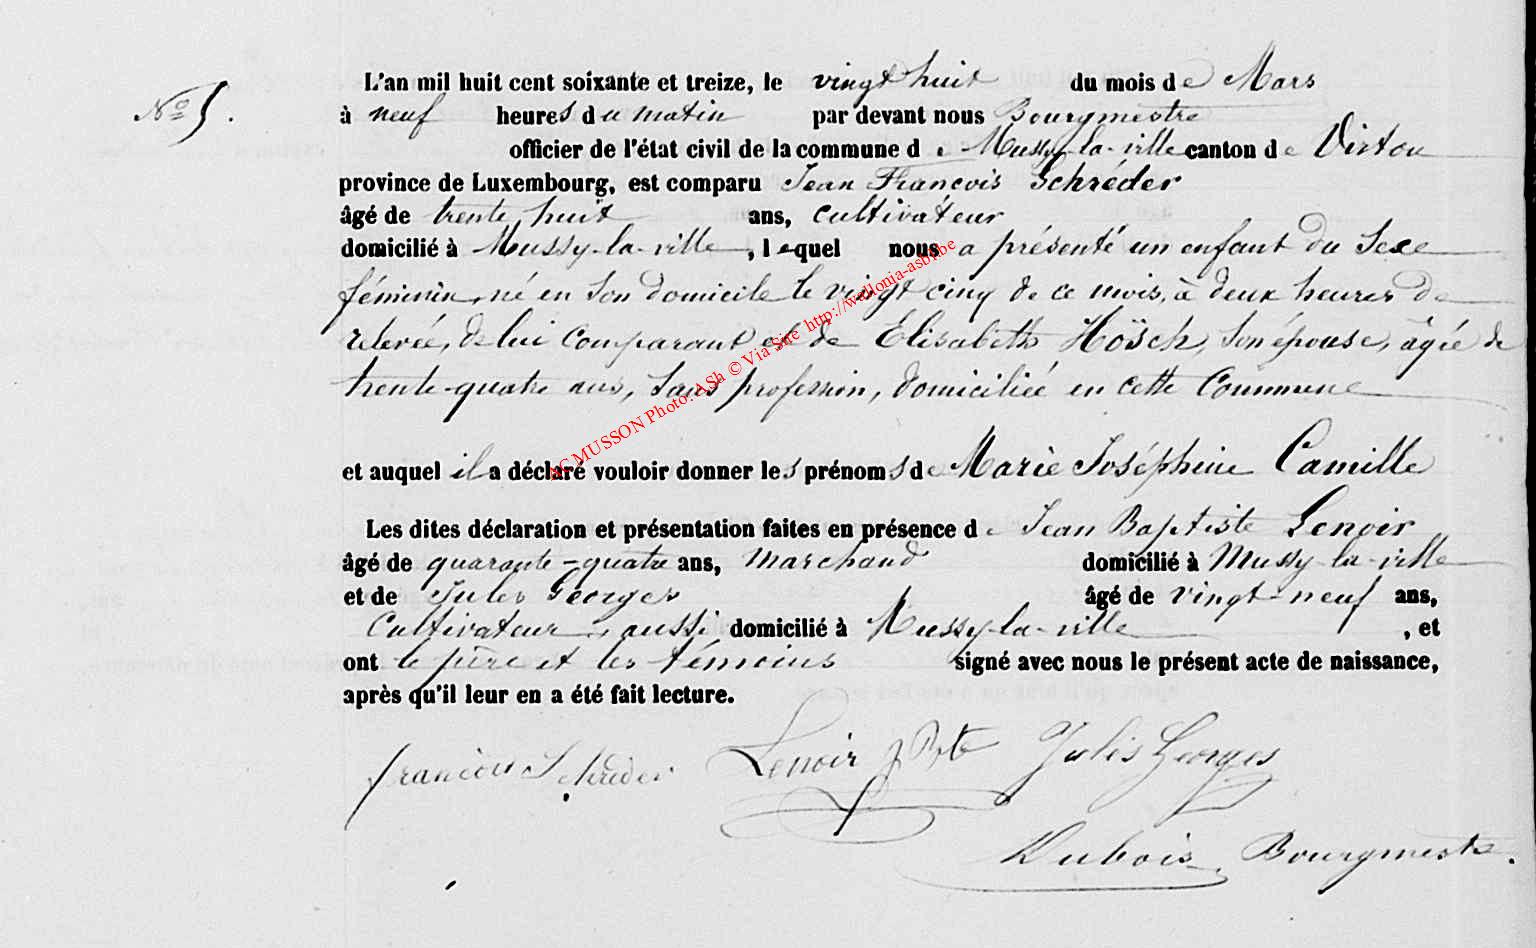 N° 5.
L'an mil huit cent soixante et treize, le vingt huit du mois de Mars
à neuf heures du matin par devant nous Bourgmestre
officier de l'état civil de la commune de Mussy-la-ville canton de Virton
province de Luxembourg, est comparu Jean François Schréder
âgé de trente huit ans, cultivateur
domicilié à Mussy-la-ville, lequel nous a présenté un enfant du Sexe
féminin, né en son domicile le vingt cinq de ce mois, à deux heures de
relevée, de lui comparant et de Élisabeth Hösch, son épouse, âgée de
trente-quatre ans, sans profession, domiciliée en cette Commune
et auquel il a déclaré vouloir donner les prénoms de Marie Joséphine Camille
Les dites déclaration et présentation faites en présence de Jean Baptiste Lenoir
âgé de quarante-quatre ans, marchand domicilié à Mussy-la-ville
et de Jules Georges âgé de vingt-neuf ans,
Cultivateur, aussi domicilié à Mussy-la-ville, et
ont le père et les témoins signé avec nous le présent acte de naissance,
après qu'il leur en a été fait lecture.
françois Schréder Lenoir J Bte Jules Georges
Dubois Bourgmestre.
AC MUSSON Photo: ASh © Via Site http://wallonia-asbl.be